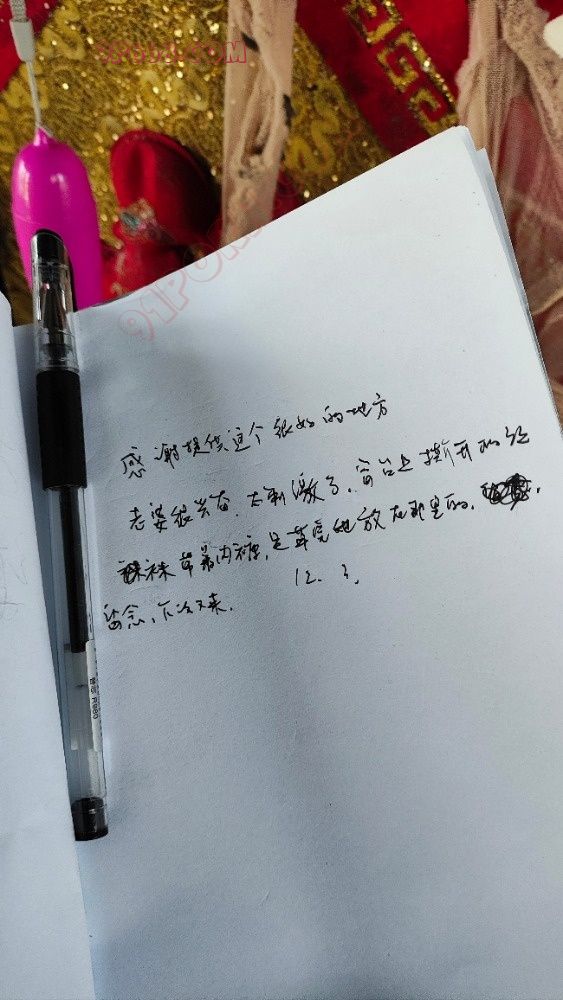 91PORN.COM
91PORN
感谢提供这个很好的地方
老婆很兴奋,太刺激了。窗台上撕开的红
袜 内裤,是 她放在那里的。
留念,下次又来。 12.3.